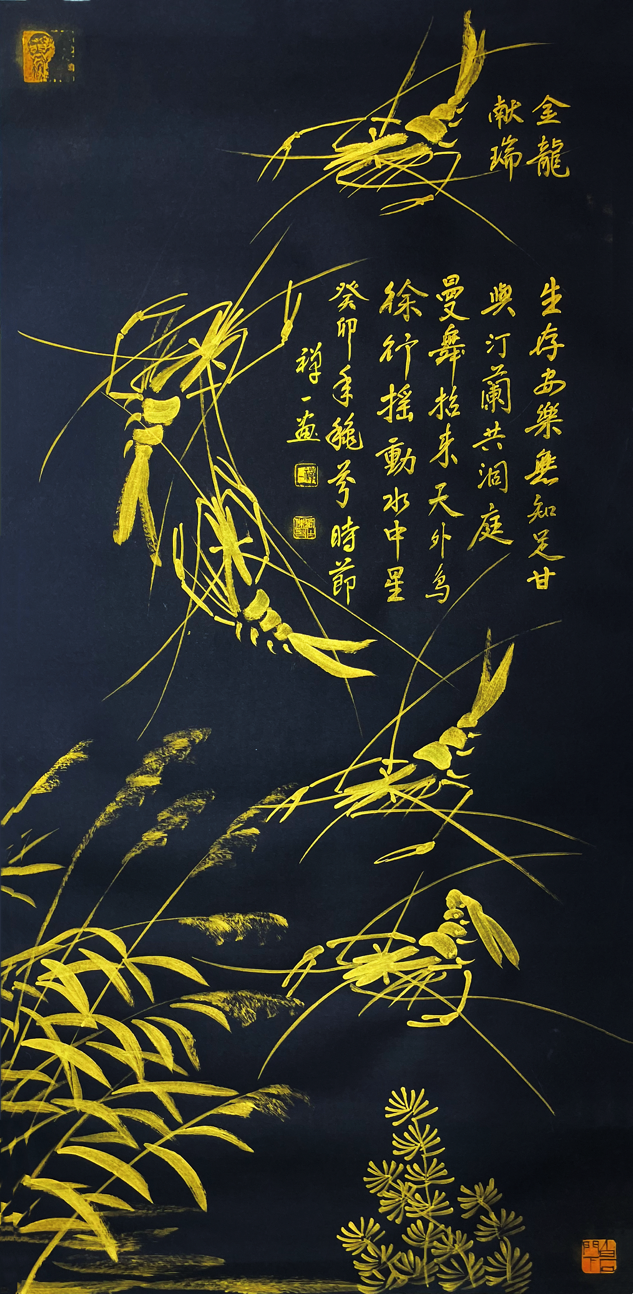 金龍
献瑞
生存安樂無知足甘
與汀蘭共洞庭
曼舞招来天外鸟
徐行摇動水中星
癸卯年穐兮時節
禅一画